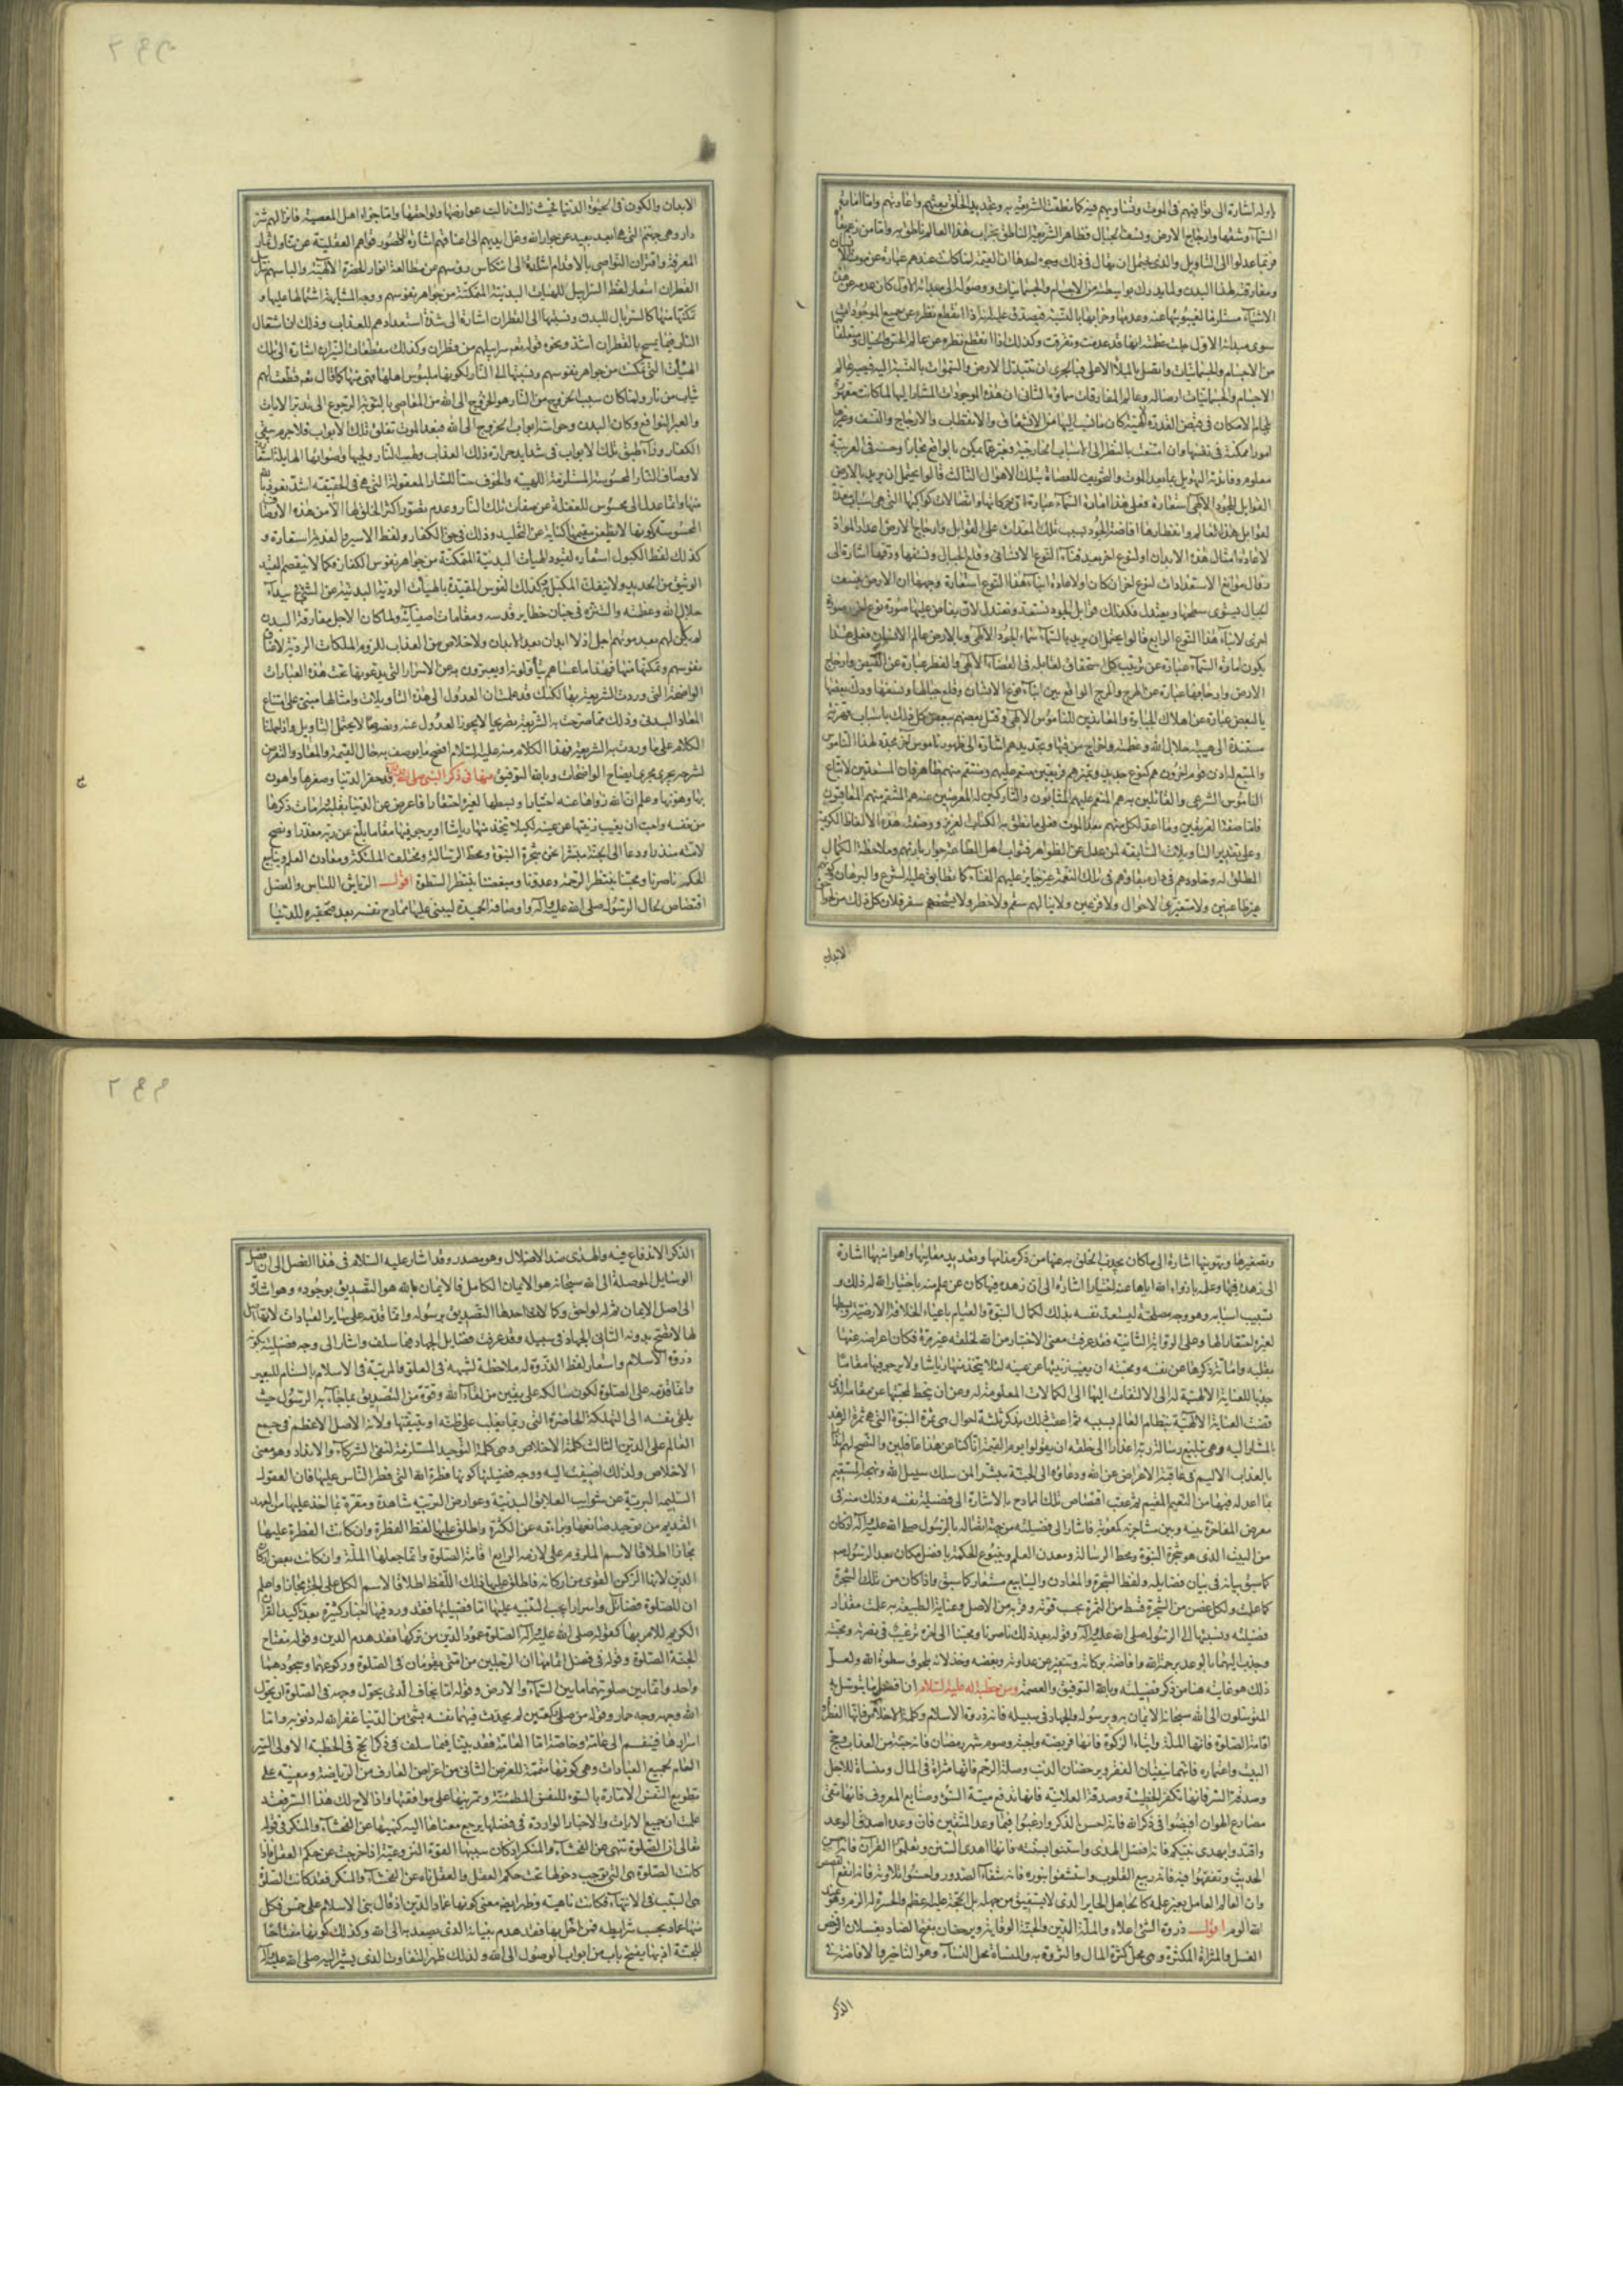 السماء وشقها وارجاج الارض ونسف الجبال فظاهر الشريعة الناطق بخراب هذا العالم ناطق به واما من زعم
ومفارقته لهذا البدن ولما يدرك بواسطته من الاجسام والجسمانيات ووصوله الى مبدائه الاول كان عدمه عن هذه
سوى مبدائه الاول حيث عظمته انها قد عدمت وتفرقت وكذلك اذا انقطع نظره عن عالم الحس والخيال ومتعلقا
من الاجسام والجسمانيات واتصل بالملأ الاعلى فبالحرى ان تتبدل الارض والسموات بالنسبة اليه فيصير عالم
الاجسام والجسمانيات ارضا له وعالم المفارقات سماؤه الثانى ان هذه الموجودات المشار اليها لما كانت مقهورة
امورا ممكنة فى نفسها وان امتنعت بالنظر الى الاسباب الخارجية
معلوم وفائدته التهويل بما بعد الموت والتخويف للعصاة بتلك الاهوال الثالث قالوا يحتمل ان يريد بالارض
لاعادة امثال هذه الابدان او لنوع اخر بعد فناء النوع الانسانى وقلع الجبال ونسفها ودقها اشارة الى
اخرى لابناء هذا النوع الرابع قالوا يحتمل ان يريد بالسماء سماء الجود الالهى وبالارض عالم الانسان فعلى هذا
الارض وارجافها عبارة عن الهرج والمرج الواقع بين ابناء نوع الانسان وقلع جبالها ونسفها ودك بعضها
بالبعض عبارة عن اهلاك الجبابرة والمعاندين للناموس الالهى وقتل بعضهم ببعض كل ذلك باسباب قهرية
مستندة الى هيبة جلال الله وعظمته واخراج من فيها وتجديدهم اشارة الى ظهور ناموس اخر مجدد لهذا الناموس
والمتبع له اذن قوم اخرون هم كنوع جديد وتميزهم فريقين منعم عليهم ومنتقم منهم ظاهر فان المستعدين لاتباع
الناموس الشرعى والقائلين به هم المنعم عليهم المثابون والتاركين له المعرضين عنه هم المنتقم منهم المعاقبون
فاما صفة الفريقين وما اعد لكل منهم بعد الموت فعلى ما نطق به الكتاب العزيز ووصفته هذه الالفاظ الكريمة
وعلى تقدير التاويلات السابقة لمن عدل عن الظواهر فثواب اهل الطاعة جوار بارئهم وملاحظة الكمال
المطلق له وخلودهم فى داره بقاؤهم فى تلك النعمة غير جايز عليهم الفناء كما تطابق عليه الشرع والبرهان
الابدان
الابدان والكون فى الحيوة الدنيا
دار وهى جهنم
المعرفة واقتران النواصى بالاقدام اشارة الى انتكاس رؤسهم عن مطالعة انوار الحضرة الالهية والباسهم سرابيل
القطران استعار لفظ السرابيل للهيئات البدنية المتمكنة من جواهر نفوسهم ووجه المشابهة اشتمالها عليها و
تمكنها منها كالسربال للبدن ونسبتها الى القطران اشارة الى شدة استعدادهم للعذاب وذلك ان اشتعال
النار فيما يمسح بالقطران اشد ونحوه قوله تعالى سرابيلهم من قطران وكذلك مقطعات النيران اشارة الى تلك
الهيئات التى تمكنت من جواهر نفوسهم ونسبتها الى النار لكونها ملبوس اهلها فهى منها كما قال تعم قطعت لهم
ثياب من نار ولما كان سبب الخروج من النار هو الخروج الى الله من المعاصى بالتوبة والرجوع الى تدبر الايات
والعبر النوافع وكان البدن وحواسه ابواب الخروج الى الله فبعد الموت تغلق تلك الابواب فلا جرم يبقى
منها وانما عدل الى المحسوس للغفلة عن صفات تلك النار وعدم تصور اكثر الخلق لها الا من هذه الاوصاف
المحسوسة وكونها لا يظعن مقيمها كناية عن التخليد وذلك فى حق الكفار ولفظ الاسير والفدية استعارة و
كذلك لفظ الكبول استعارة لقيود الهيئات البدنية المتمكنة من جواهر نفوس الكفار فكما لا ينفصم القيد
الوثيق من الحديد ولا ينفك المكبل به كذلك النفوس المقيدة بالهيئات الردية البدنية عن المشى فى بيداء
جلال الله وعظمته والتنزه فى جنان حظاير قدسه ومقامات اصفيائه ولما كان الاجل مفارقة البدن
لم يكن لهم بعد موتهم اجل اذ لا ابدان بعد الابدان ولا خلاص من العذاب للزوم الملكات الردية لاعناق
نفوسهم وتمكنها منها فهذا ما عساهم يتأولونه او يعبرون به عن الاسرار التى يدعونها تحت هذه العبارات
الواضحة التى وردت الشريعة بها لكنك قد علمت ان العدول الى هذه التاويلات وامثالها مبنى على امتناع
المعاد البدنى وذلك مما صرحت به الشريعة تصريحا لا يجوز العدول عنه ونصوصا لا يحتمل التاويل واذا حملنا
الكلام على ما وردت به الشريعة فهذا الكلام منه عليه السلام افصح ما يوصف به حال القيمة والمعاد والتعرض
لشرحه يجرى مجرى ايضاح الواضحات وبالله التوفيق منها فى ذكر النبى صلى الله عليه وآله قد حقر الدنيا وصغرها واهون
بها وهونها وعلم ان الله زواها عنه اختيارا وبسطها لغيره احتقارا فاعرض عن الدنيا بقلبه وامات ذكرها
من نفسه واحب ان يغيب زينتها عن عينه لكيلا يتخذ منها رياشا او يرجو فيها مقاما بلغ عن ربه معذرا ونصح
لامته منذرا ودعا الى الجنة مبشرا نحن شجرة النبوة ومحط الرسالة ومختلف الملئكة ومعادن العلم وينابيع
الحكم ناصرنا ومحبنا ينتظر الرحمة وعدونا ومبغضنا ينتظر السطوة اقول الرياش اللباس والفصل
اقتصاص لحال الرسول صلى الله عليه وآله واوصافه الحميدة ليبنى عليها ممادح نفسه بعد فتحقيره للدنيا
وتصغيرها وتهوينها اشارة الى ما كان يجذب الخلق به عنها من ذكر مذامها وتعديد معايبها واهوانه بها اشارة
الى زهده فيها وعلمه بازواء الله اياها عنه اختيارا اشارة الى ان زهده فيها كان عن علم منه باختيار الله له ذلك و
تسبيب اسبابه وهو وجه مصلحته ليستعد نفسه بذلك لكمال النبوة والقيام باعباء الخلافة الارضية وبسطها
لغيره احتقارا لها وعلى الرواية الثانية فقد عرفت معنى الاختبار من الله لخلقه غير مرة فكان اعراضه عنها
بقلبه واماتة ذكرها عن نفسه ومحبته ان يغيب زينتها عن عينه لئلا يتخذ منها رياشا ولا يرجو فيها مقاما
جذبا للعناية الالهية له الى الالتفات اليها الى الكمالات المعلومة له وعن ان ينحط لمحبتها عن مقامه الذى
قضت العناية الالهية بنظام العالم بسببه ثم اعقب ذلك بذكر ثلثة احوال هى ثمرة النبوة التى هى ثمرة الزهد
المشار اليه وهى تبليغ رسالة ربه اعذارا الى خلقه ان يقولوا يوم القيمة انا كنا عن هذا غافلين والنصح لهم
بالعذاب الاليم فى عاقبة الاعراض عن الله ودعاؤه الى الجنة مبشرا لمن سلك سبيل الله ونهجه المستقيم
بما اعد له فيها من النعيم المقيم ثم عقب اقتصاص تلك الممادح بالاشارة الى فضيلة نفسه وذلك منه فى
معرض المفاخرة بينه وبين مشاجريه كمعوية فاشار الى فضيلته من جهة اتصاله بالرسول صلى الله عليه وآله اذ كان
من البيت الذى هو شجرة النبوة ومحط الرسالة ومعدن العلم وينبوع الحكمة بافضل مكان بعد الرسول صم
كما سبق بيانه فى بيان فضايله ولفظ الشجرة والمعادن والينابيع مستعار كما سبق واذا كان من تلك الشجرة
كما علمت ولكل غصن من الشجرة قسط من الثمرة بحسب قوته وقربه من الاصل وعناية الطبيعة به علمت مقدار
فضيلته ونسبتها الى الرسول صلى الله عليه وآله وقوله بعد ذلك ناصرنا ومحبنا الى اخره ترغيب فى نصرته ومحبته
وجذب اليهما بالوعد برحمة الله وافاضة بركاته وتنفير عن عداوته وبغضه وخذلانه بلحوق سطوة الله ولعل
ذلك هو غايته هنا من ذكر فضيلته وبالله التوفيق والعصمة ومن خطبة له عليه السلام ان افضل ما يتوسل به
المتوسلون الى الله سبحانه الايمان به وبرسوله والجهاد فى سبيله فانه ذروة الاسلام وكلمة الاخلاص فانها الفطرة
اقامة الصلوة فانها الملة وايتاء الزكوة فانها فريضة واجبة وصوم شهر رمضان فانه جنة من العذاب وحج
البيت واعتماره فانهما ينفيان الفقر ويرحضان الذنب وصلة الرحم فانها مثراة فى المال ومنساة للاجل
وصدقة السر فانها تكفر الخطيئة وصدقة العلانية فانها تدفع ميتة السوء وصنايع المعروف فانها تقى
مصارع الهوان افيضوا فى ذكر الله فانه احسن الذكر وارغبوا فيما وعد المتقين فان وعده اصدق الوعد
واقتدوا بهدى نبيكم فانه افضل الهدى واستنوا بسنته فانها اهدى السنن وتعلموا القرآن فانه احسن
الحديث وتفقهوا فيه فانه ربيع القلوب واستشفوا بنوره فانه شفاء الصدور واحسنوا تلاوته فانه انفع القصص
وان العالم العامل بغير علمه كالجاهل الحاير الذى لا يستفيق من جهله بل الحجة عليه اعظم والحسرة له الزم وهو عند
الله الوم اقول ذروة الشئ اعلاه والملة الدين والجنة الوقاية ويرحضان بفتح الضاد يغسلان
الغسل والمثراة المكثرة وهى محل كثرة المال والثروة به والمنساة محل النساء وهو التاخير والافاضة فى
الذكر
الذكر الاندفاع فيه والهدى ضد الاضلال وهو مصدر وقد اشار عليه السلام فى هذا الفصل الى ان افضل
الوسايل الموصلة الى الله سبحانه هو الايمان الكامل فالايمان بالله هو التصديق بوجوده وهو اشارة
الى اصل الايمان ثم له لواحق وكمالات احدها التصديق برسوله وانما قدمه على ساير العبادات لانه اصل
لها لا تصح بدونه الثانى الجهاد فى سبيله وقد عرفت فضايل الجهاد فيما سلف واشار الى وجه فضيلته بكونه
ذروة الاسلام واستعار لفظ الذروة له ملاحظة لشبهه فى العلو والمرتبة فى الاسلام بالسنام للبعير
وانما قدمه على الصلوة لكون سالكه على يقين من لقاء الله وقوة من التصديق بما جاء به الرسول حيث
يلقى نفسه الى التهلكة الحاضرة التى ربما يغلب على ظنه او يتيقنها ولانه الاصل الاعظم فى جمع
العالم على الدين الثالث كلمة الاخلاص وهى كلمة التوحيد المستلزمة لنفى الشركاء والانداد وهو معنى
الاخلاص ولذلك اضيفت اليه ووجه فضيلتها كونها فطرة الله التى فطر الناس عليها فان العقول
السليمة البرية عن شوايب العلايق البدنية وعوارض التربية شاهدة ومقرة بما اخذ عليها من العهد
القديم من توحيد صانعها وبرائته عن الكثرة واطلق عليها لفظ الفطرة وان كانت الفطرة عليها
مجازا اطلاقا لاسم الملزوم على لازمه الرابع اقامة الصلوة وانما جعلها الملة وان كانت بعض اركان
الدين لانها الركن القوى من اركانه فاطلق عليها ذلك اللفظ اطلاقا لاسم الكل على الجزء مجازا واعلم
ان للصلوة فضائل واسرارا يجب التنبيه عليها اما فضيلتها فقد ورد فيها اخبار كثيرة بعد تاكيد القرآن
الكريم للامر بها كقوله صلى الله عليه وآله الصلوة عمود الدين من تركها فقد هدم الدين وقوله مفتاح
الجنة الصلوة وقوله فى فضل اتمامها ان الرجلين من امتى يقومان فى الصلوة وركوعهما وسجودهما
واحد وانما بين صلوتهما ما بين السماء والارض وقوله اما يخاف الذى يحول وجهه فى الصلوة ان يحول
الله وجهه وجه حمار وقوله من صلى ركعتين لم يحدث فيهما نفسه بشئ من الدنيا غفر الله له ذنوبه واما
اسرارها فينقسم الى عامة وخاصة اما العامة فقد بينا فيما سلف فى ذكر الحج فى الخطبة الاولى السر
العام لجميع العبادات وهى كونها متممة للغرض الثانى من اغراض العارف من الرياضة ومعينة على
تطويع النفس الامارة بالسوء للنفس المطمئنة وتمرينها على موافقتها واذا لاح لك هذا السر فقد
علمت ان جميع الايات والاخبار الواردة فى فضلها يرجع معناها اليه كنهيها عن الفحشاء والمنكر فى قوله
تعالى ان الصلوة تنهى عن الفحشاء والمنكر اذ كان سببها القوة النزوعية اذا خرجت عن حكم العقل فاذا
كانت الصلوة هى التى توجب دخولها تحت حكم العقل والعقل ناه عن الفحشاء والمنكر فقد كانت الصلوة
هى السبب فى الانتهاء فكانت ناهية وظهر ايضا معنى كونها عماد الدين اذ قال بنى الاسلام على خمس فكل
منها عماد بحسب شرايطه فمن اخل بها فقد هدم بنيانه الذى يصعد به الى الله وكذلك كونها مفتاحا
للجنة اذ بها ينفتح باب من ابواب الوصول الى الله ولذلك ظهر التفاوت الذى يشير اليه صلى الله عليه وآله